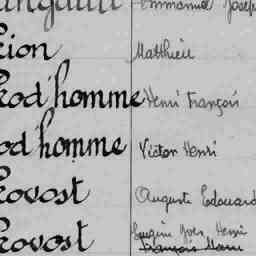 Emmanuel Joseph
rion Matthieu
rod'homme Henri François
od'homme Victor Henri
rovost Auguste Edouard
rovost Eugène Yves Henri
François Marie